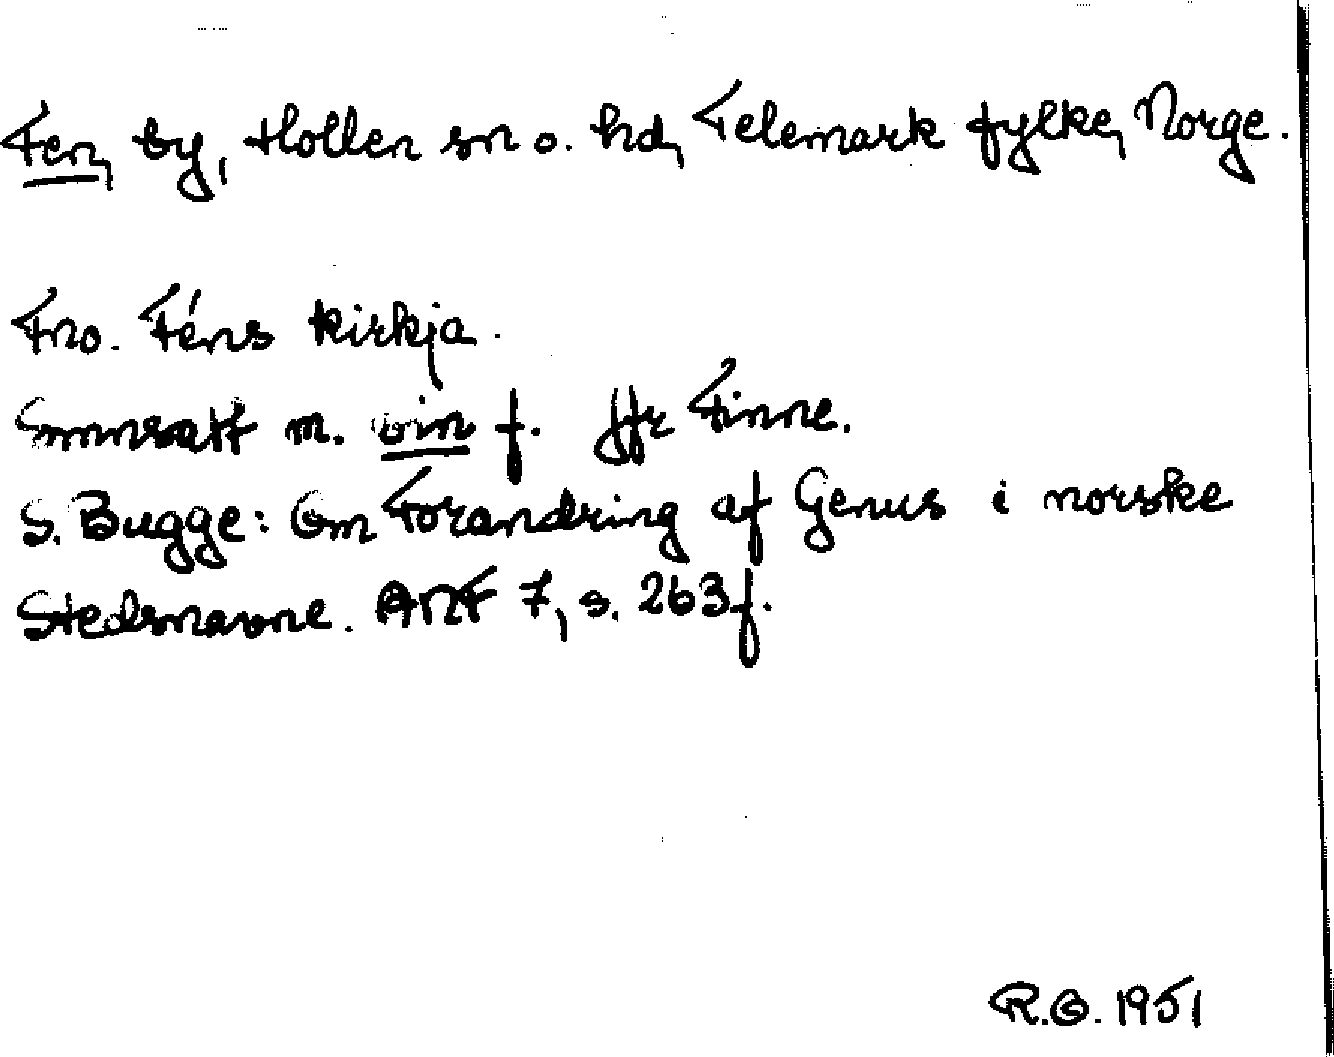 Fen, by, Hollen sn o. hd, Telemark fylke, Norge.
Fno. Féns kirkja.
Smnsatt m. vin f. Jfr Finne.
S. Bugge: Om Forandring af Genus i norske
Stedsnavne. ANF 7, s. 263 f.
R.O. 1951